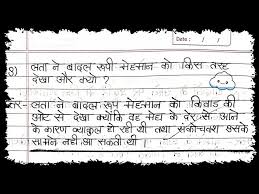 Date : / /
8) लता ने बादल रूपी मेहमान को किस तरह
देखा और क्यों ?
उत्तर- लता ने बादल रूप मेहमान को किवाड़ की
ओट से देखा क्योंकि वह मेघ के देर से आने
के कारण व्याकुल हो रही थी तथा संकोचवश उसके
सामने नहीं आ सकती थी ।